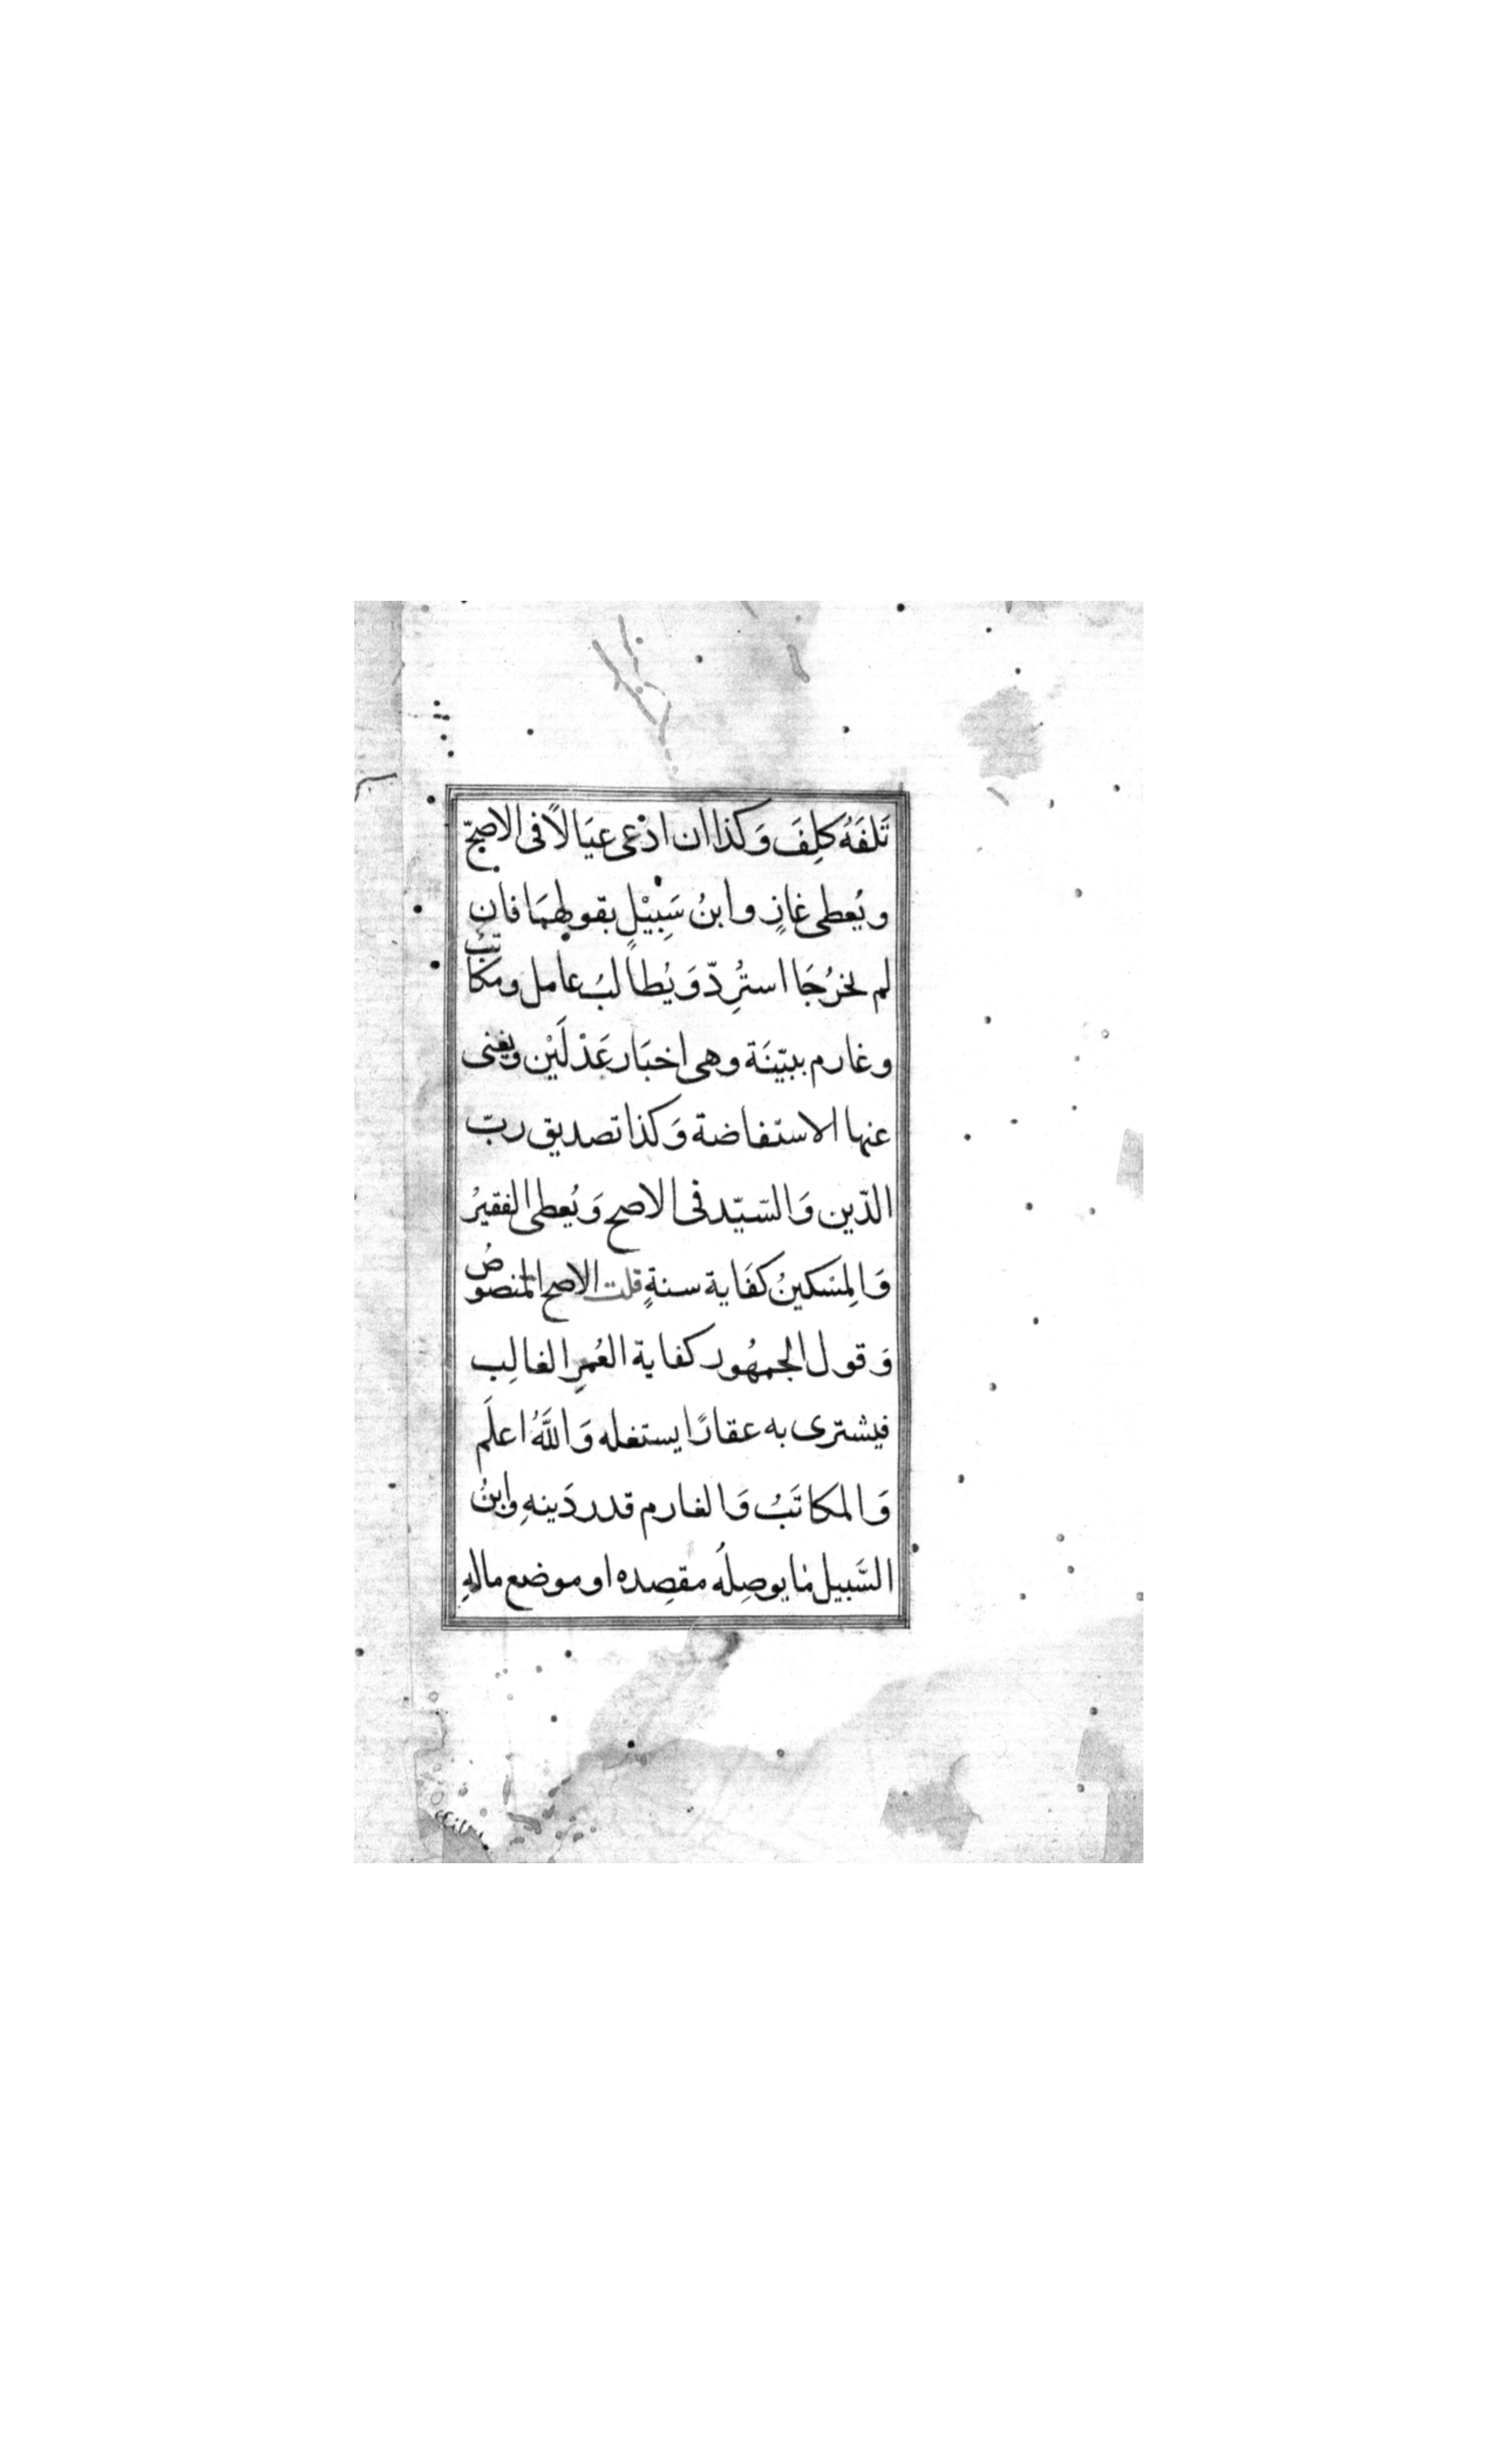 تَلَفَهُ كلِفَ وَكذا ان ادّعى عيَالاً فى الاصحّ
ويُعطى غازٍ وابنُ سَبِيْلٍ بقولهمَا فان
لم يخرُجَا استُرِدّ وَيُطالَبُ عامل ومكاتبٌ
وغارم ببيّنَة وهى اخبَار عَدْلَيْن ويغنى
عنها الاستفاضة وَكذا تصديق ربّ
الدّين وَالسّيّد فى الاصح وَيُعطى الفقيرُ
وَالمِسَكينُ كفَاية سنةٍ قلت الاصح المنصوصُ
وَقول الجمهُور كفاية العُمرِ الغالِب
فيشترى به عقارًا يستغله وَاللّٰهُ اعلَم
وَالمكاتَبُ وَالغارم قدر دَينهِ وابنُ
السَّبيل مَا يوصِلُه مقصِده او موضع مالهِ